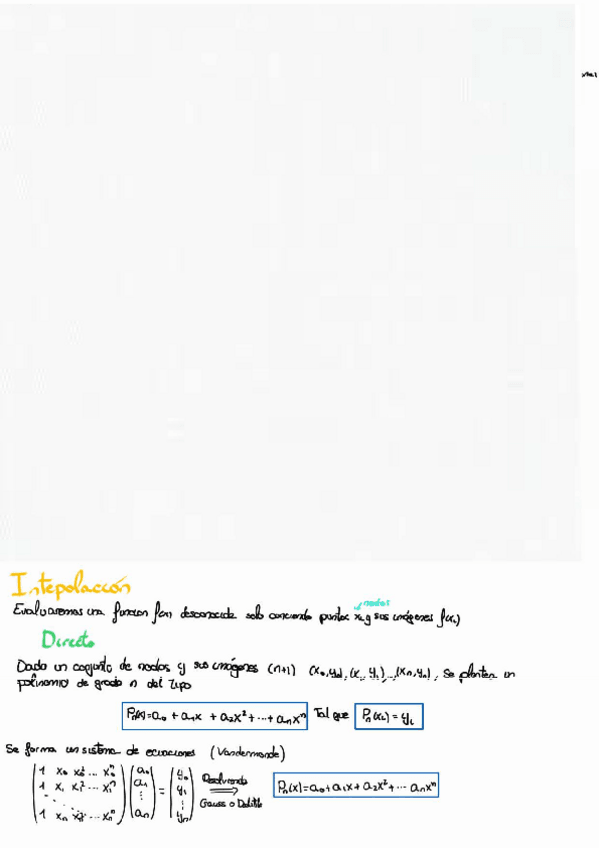 Intepolación
nodos
Evaluaremos una funcion f(x) desconocida solo conociendo puntos xᵢ y sus imágenes f(xᵢ)
Directo
Dado un conjunto de nodos y sus imágenes (n+1) (x₀,y₀), (x₁,y₁)...(xₙ,yₙ), se plantea un
polinomio de grado n del tipo
Pₙ(x)=a₀ + a₁x + a₂x² + ··· + aₙxⁿ Tal que Pₙ(xᵢ) = yᵢ
Se forma un sistema de ecuaciones (Vandermonde)
1 x₀ x₀² ... x₀ⁿ a₀ y₀ Resolviendo
1 x₁ x₁² ... x₁ⁿ a₁ = y₁ ⟹ Pₙ(x)=a₀+a₁x+a₂x²+··· aₙxⁿ
⋱ ⋮ ⋮ Gauss o Dolittle
1 xₙ xₙ² ... xₙⁿ aₙ yₙ